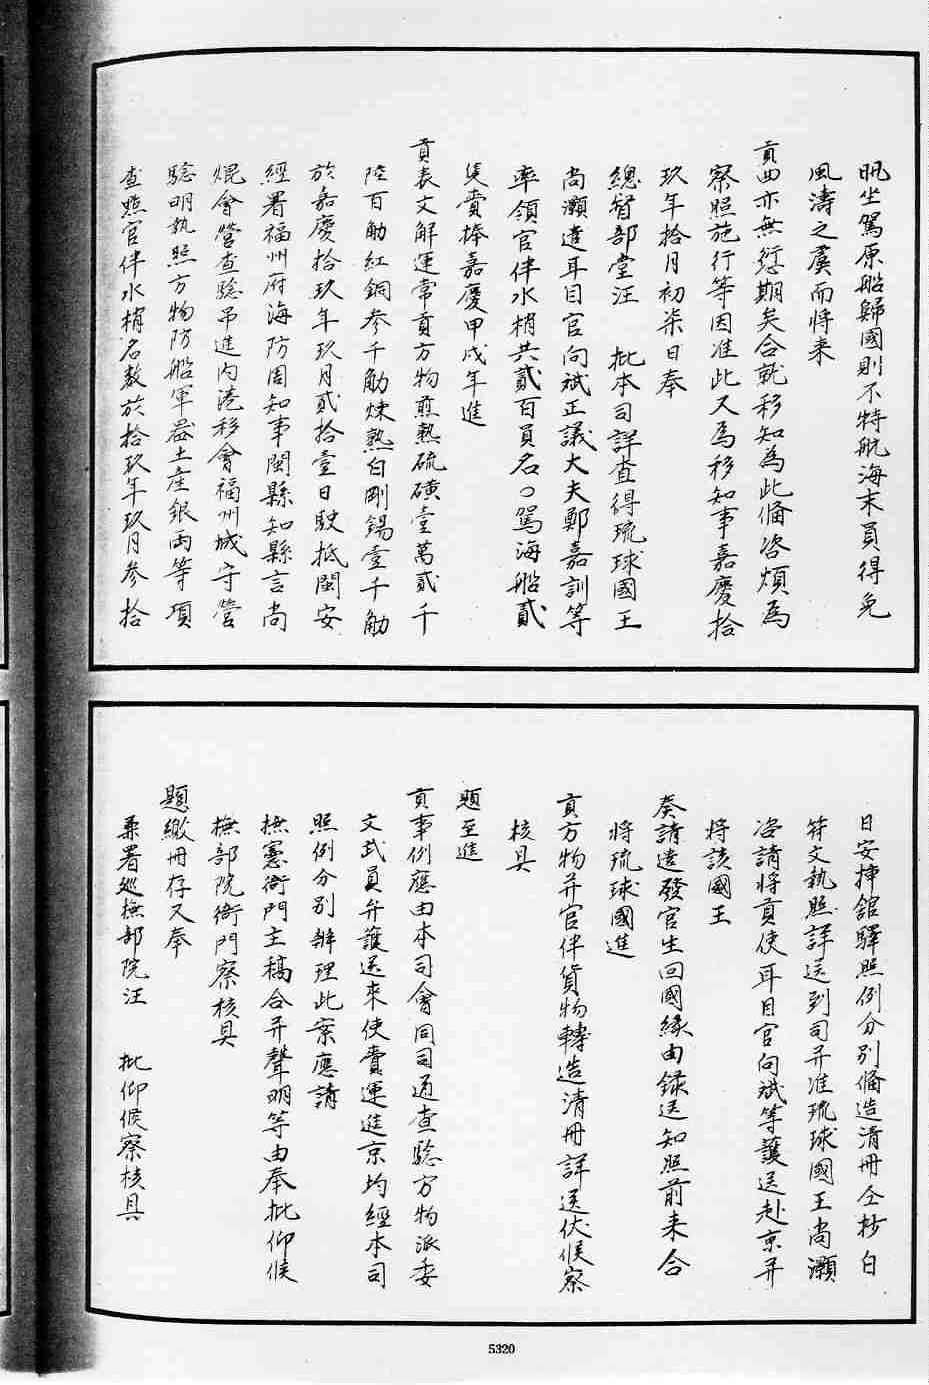 帆坐駕原船歸國則不特航海末員得免
風濤之虞而將來
貢典亦無愆期矣合就移知為此備咨煩為
察照施行等因准此又為移知事嘉慶拾
玖年拾月初柒日奉
總督部堂汪　批本司詳查得琉球國王
尚灝遣耳目官向斌正議大夫鄭嘉訓等
率領官伴水梢共貳百員名○駕海船貳
隻賫捧嘉慶甲戌年進
貢表文解運常貢方物煎熟硫磺壹萬貳千
陸百觔紅銅參千觔煉熟白剛錫壹千觔
於嘉慶拾玖年玖月貳拾壹日駛抵閩安
經署福州府海防周知事閩縣知縣言尚
焜會營查驗吊進內港移會福州城守營
驗明執照方物防船軍器土產銀兩等項
查照官伴水梢名數於拾玖年玖月參拾
日安挿舘驛照例分別俻造清冊仝抄白
符文執照詳送到司并准琉球國王尚灝
咨請將貢使耳目官向斌等護送赴京并
將該國王
奏請遣發官生回國緣由錄送知照前来合
將琉球國進
貢方物并官伴貨物轉造清冊詳送伏候察
核具
題至進
貢事例應由本司會同司道查驗方物派委
文武員弁護送來使賫運進京均經本司
照例分別辦理此案應請
撫憲衙門主稿合并聲明等由奉批仰候
撫部院衙門察核具
題繳冊存又奉
兼署巡撫部院汪　批仰候察核具
5320